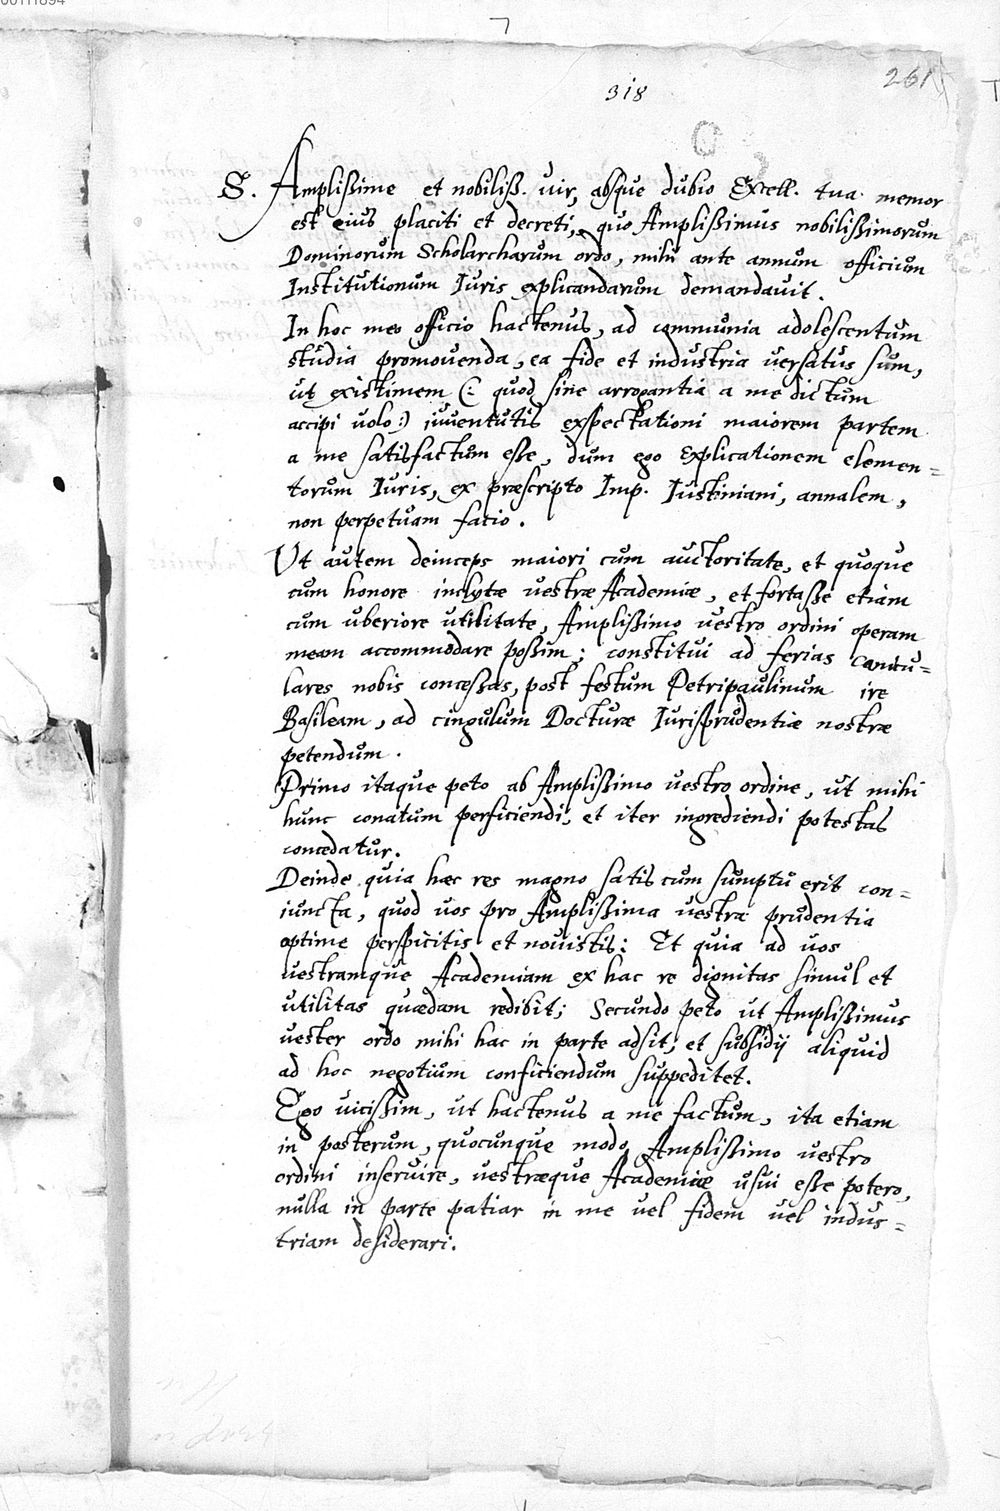 00111894
261
318
S. Amplißime et nobiliß. uir, absque dubio Excell. tua memor
est eius placiti et decreti, quo Amplißimus nobilißimorum
Dominorum Scholarcharum ordo, mihi ante annum officium
Institutionum Iuris explicandarum demandauit.
In hoc meo officio hactenus, ad communia adolescentum
studia promouenda, ea fide et industria uersatus sum,
ut existimem (: quod sine arrogantia a me dictum
accipi uolo :) iuuentutis exspectationi maiorem partem
a me satisfactum esse, dum ego explicationem elemen=
torum Iuris, ex præscripto Imp. Iustiniani, annalem,
non perpetuam facio.
Vt autem deinceps maiori cum auctoritate, et quoque
cum honore inclytæ uestræ Academiæ, et fortaße etiam
cum uberiore utilitate, Amplißimo uestro ordini operam
meam accommodare poßim; constitui ad ferias Canicu=
lares nobis conceßas, post festum Petripaulinum ire
Basileam, ad cingulum Docturæ Iurisprudentiæ nostræ
petendum.
Primo itaque peto ab Amplißimo uestro ordine, ut mihi
hunc conatum perficiendi, et iter ingrediendi potestas
concedatur.
Deinde quia hæc res magno satis cum sumptu erit con=
iuncta, quod uos pro Amplißima uestra prudentia
optime perspicitis et nouistis: Et quia ad uos
uestramque Academiam ex hac re dignitas simul et
utilitas quædam redibit; Secundo peto ut Amplißimus
uester ordo mihi hac in parte adsit, et subsidij aliquid
ad hoc negotium conficiendum suppeditet.
Ego uicißim, ut hactenus a me factum, ita etiam
in posterum, quocunque modo Amplißimo uestro
ordini inseruire, uestræque Academiæ usui eße potero,
nulla in parte patiar in me uel fidem uel indus=
triam desiderari.